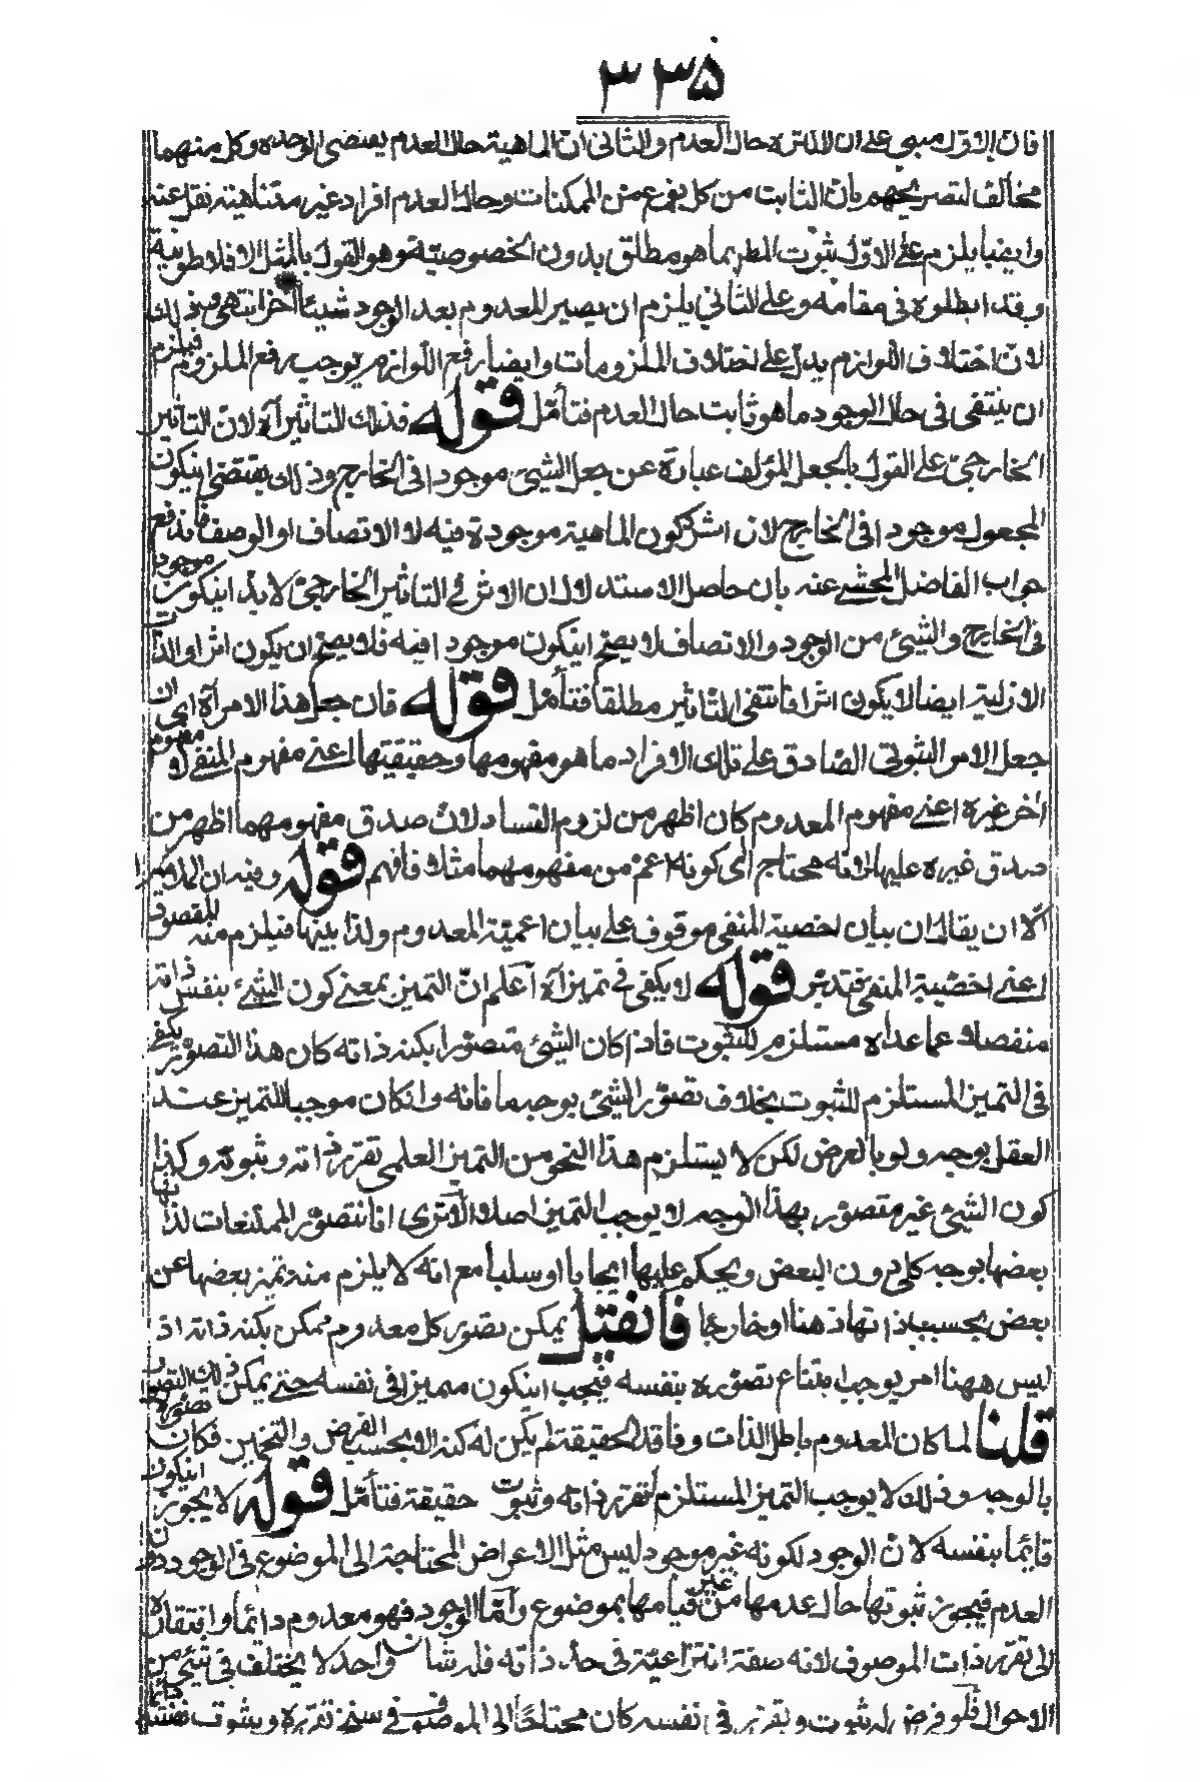 ٣٣٥
فان الاول مبني على ان الكثرة حال العدم والثاني ان الماهية حال العدم يقتضي الوحدة وكل منهما
مخالف لتصريحهم بان الثابت من كل نوع من الممكنات وحال العدم افراد غير متناهية نقل عنه
وايضا يلزم على الاول ثبوت المطر بما هو مطلق بدون الخصوصية وهو القول بالمثل الافلاطونية
وقد ابطلوه في مقامه وعلى الثاني يلزم ان يصير المعدوم بعد الوجود شيئا آخر انتهى وذلك
لان اختلاف اللوازم يدل على اختلاف الملزومات وايضا رفع اللوازم يوجب رفع الملزوم فيلزم
ان ينتفي في حال الوجود ما هو ثابت حال العدم فتأمل قوله فذلك التاثير آه لان التاثير
الخارجي على القول بالجعل المؤلف عبارة عن جعل الشيئ موجودا في الخارج وذلك يقتضي اينكون
المجعول موجودا في الخارج لان اثر كون الماهية موجودة فيه لا الاتصاف او الوصف فاندفع
جواب الفاضل المحشي عنه بان حاصل الاستدلال ان الاثر في التاثير الخارجي لابد اينكون موجودا
في الخارج والشيئ من الوجود والاتصاف لا يصح اينكون موجودا فيه فلا يصح ان يكون اثرا والذات
الازلية ايضا لا يكون اثرا فانتفى التاثير مطلقا فتأمل قوله فان جعل هذا الامر آه اي ان
جعل الامر الثبوتي الصادق على تلك الافراد ما هو مفهومها وحقيقتها اعني مفهوم المنفي لا مفهوم
آخر غيره اعني مفهوم المعدوم كان اظهر من لزوم الفساد لان صدق مفهومهما اظهر من
صدق غيره عليها لانه محتاج الى كونه اعم من مفهومهما مثلا فافهم قوله وفيه ان المذكور
الا ان يقال ان بيان اخصية المنفي موقوف على بيان اعمية المعدوم ولذا بينها فيلزم منه المقصود
اعني اخصية المنفي فتدبر قوله لا يكفي في تميز آه اعلم ان التميز بمعنى كون الشيئ بنفس ذاته
منفصلا عما عداه مستلزم للثبوت فاذا كان الشيئ متصورا بكنه ذاته كان هذا التصور يكفي
في التميز المستلزم للثبوت بخلاف تصور الشيئ بوجه ما فانه وانكان موجبا للتميز عند
العقل بوجه ولو بالعرض لكن لا يستلزم هذا النحو من التميز العلمي تقرير ذاته وثبوته وكذا
كون الشيئ غير متصور بهذا الوجه لا يوجب التميز اصلا الا ترى انا نتصور الممتنعات لذاتها
بعضها بوجه كلي دون البعض ويحكم عليها ايجابا او سلبا مع انه لا يلزم منه تميز بعضها عن
بعض بحسب ذاتها ذهنا او خارجا فان قيل يمكن تصور كل معدوم ممكن بكنه ذاته اذ
ليس ههنا امر يوجب امتناع تصوره بنفسه فيجب اينكون متميزا في نفسه حتى يمكن ذلك التصور
قلنا لما كان المعدوم باطل الذات وفاقد الحقيقة لم يكن له كنه الا بحسب الفرض والتخمين فكان تصوره
بالوجه وذلك لا يوجب التميز المستلزم لتقرر ذاته وثبوت حقيقة فتأمل قوله لا يجوز اينكون
قائما بنفسه لان الوجود لكونه غير موجود ليس مثل الاعراض المحتاجة الى الموضوع في الوجود دون
العدم فيجوز ثبوتها حال عدمها من غير قيامها بموضوع وأما الوجود فهو معدوم دائما وافتقاره
الى تقرر ذات الموصوف لانه صفة انتزاعية في حد ذاته فله شان واحد لا يختلف في شيئ من
الاحوال فلو فرض له ثبوت وتقرر في نفسه كان محتاجا الى الموصوف في سنخ تقرره وثبوت